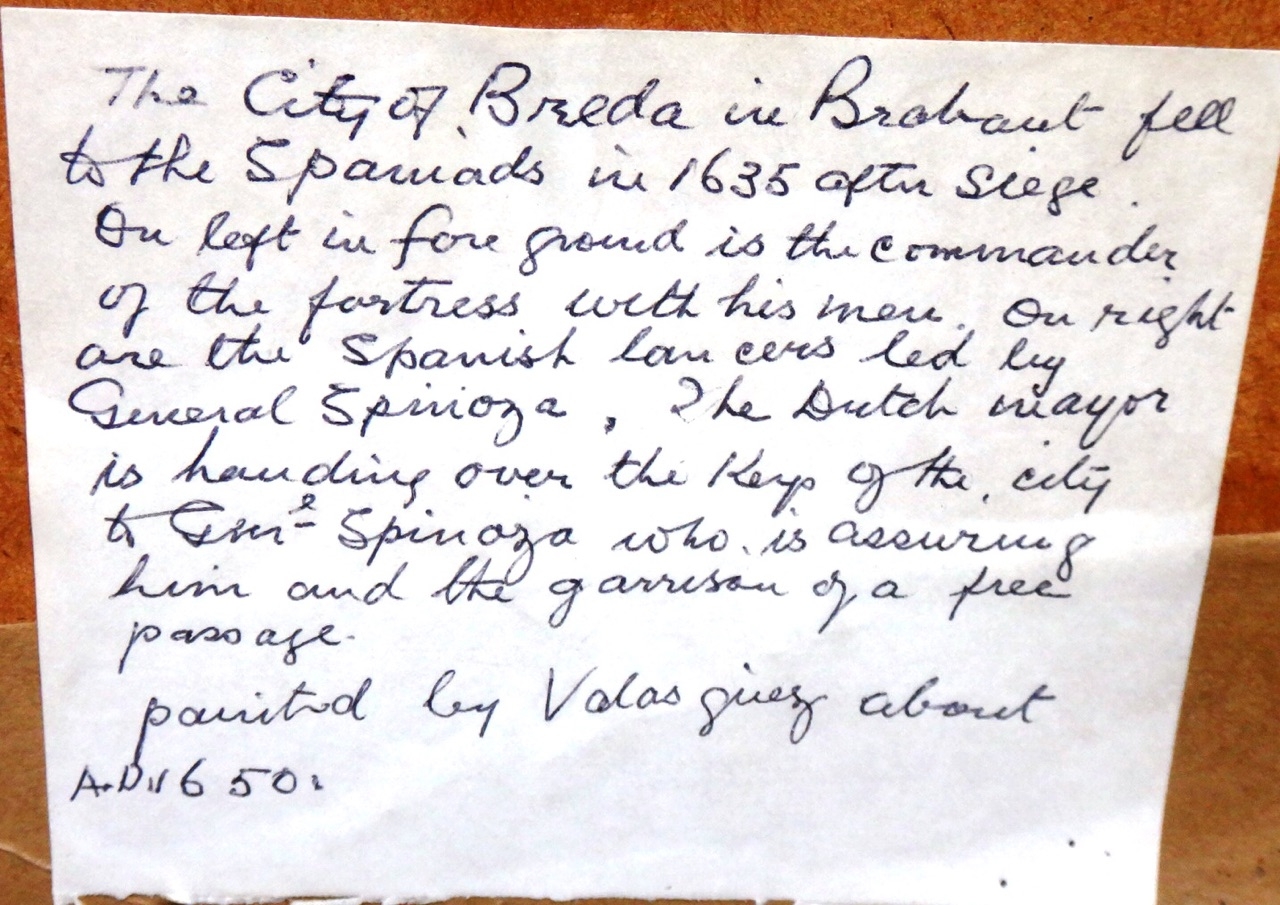 The City of Breda in Brabant fell
to the Spaniads in 1635 after Siege.
On left in fore ground is the commander
of the fortress with his men. On right
are the Spanish lancers led by
General Spinoza. The Dutch mayor
is handing over the Keys of the city
to Genl Spinoza who is assuring
him and the garrison of a free
passage.
painted by Valasquez about
A.D. 1650.